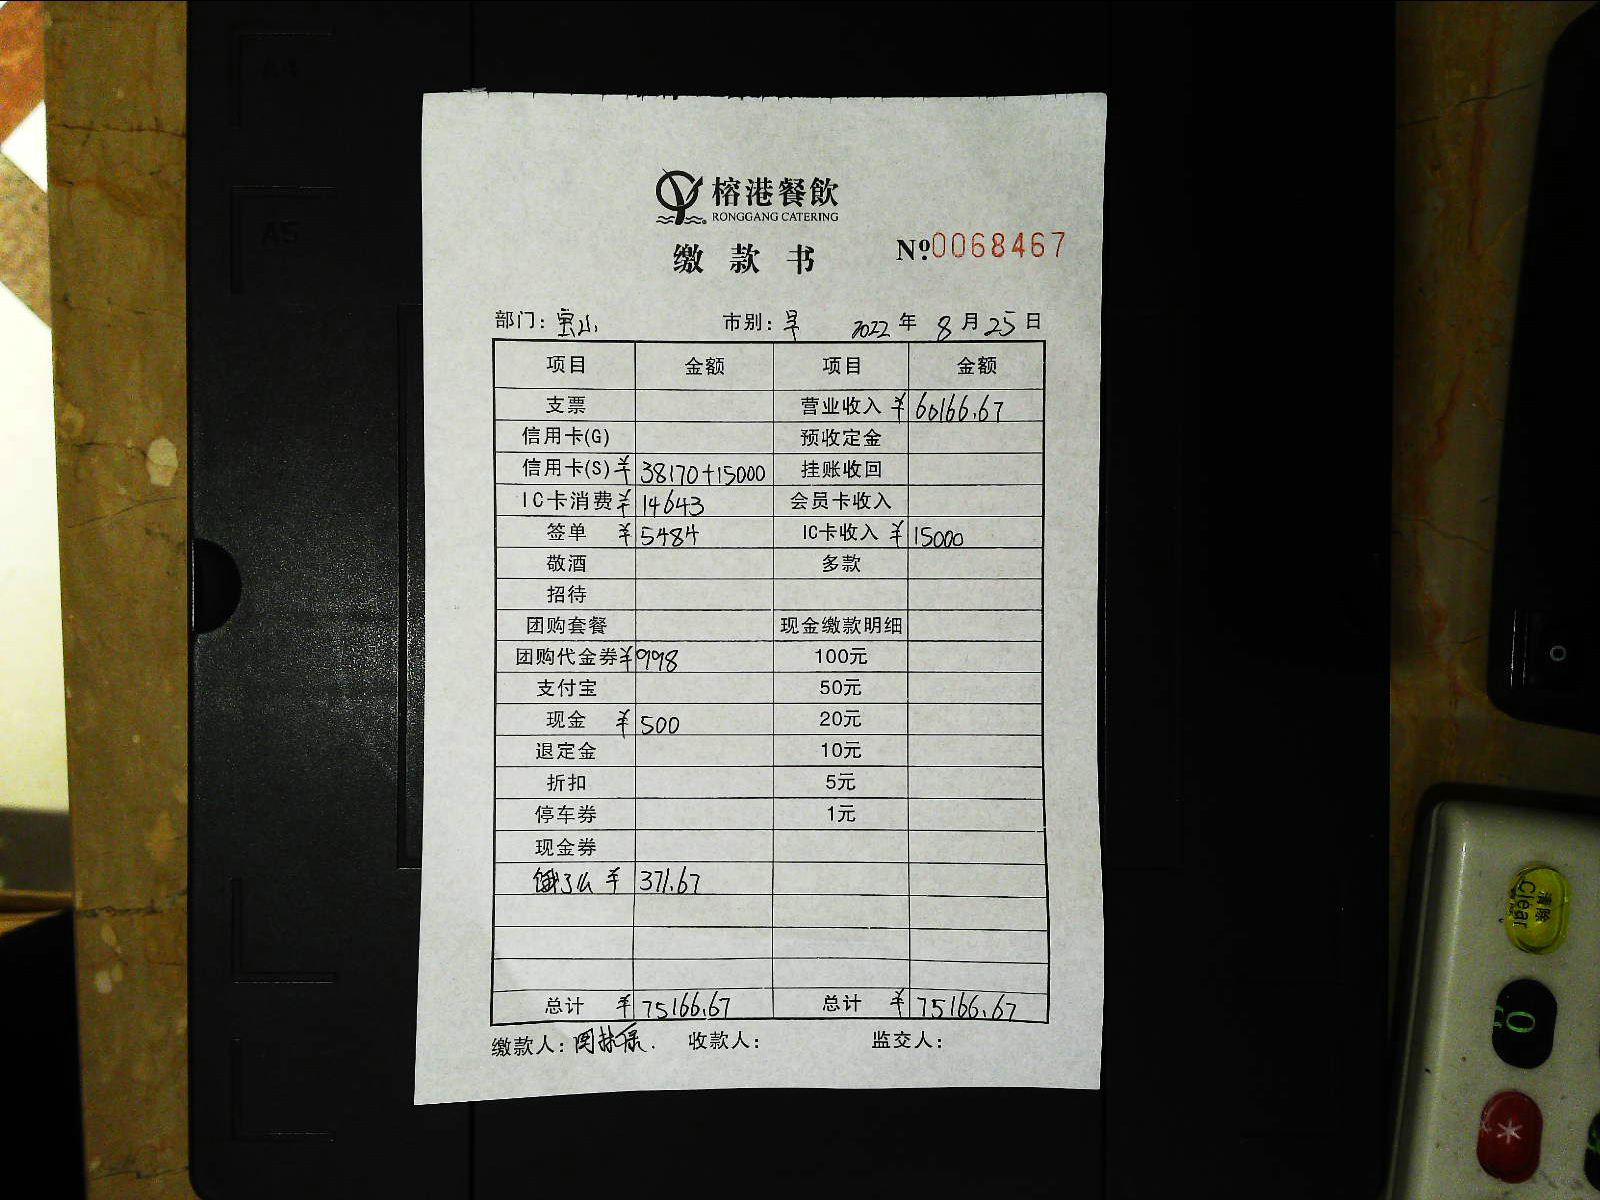 A4
A5
榕港餐飲
RONGGANG CATERING
缴款书 Nº:0068467
部门:宝山 市别:早 2022年8月25日
项目 金额 项目 金额
支票 营业收入 ¥60166.67
信用卡(G) 预收定金
信用卡(S) ¥38170+15000 挂账收回
IC卡消费 ¥14643 会员卡收入
签单 ¥5484 IC卡收入 ¥15000
敬酒 多款
招待
团购套餐 现金缴款明细
团购代金券 ¥998 100元
支付宝 50元
现金 ¥500 20元
退定金 10元
折扣 5元
停车券 1元
现金券
饿了么 ¥371.67
总计 ¥75166.67 总计 ¥75166.67
缴款人: 收款人: 监交人:
清除
Clear
0
*